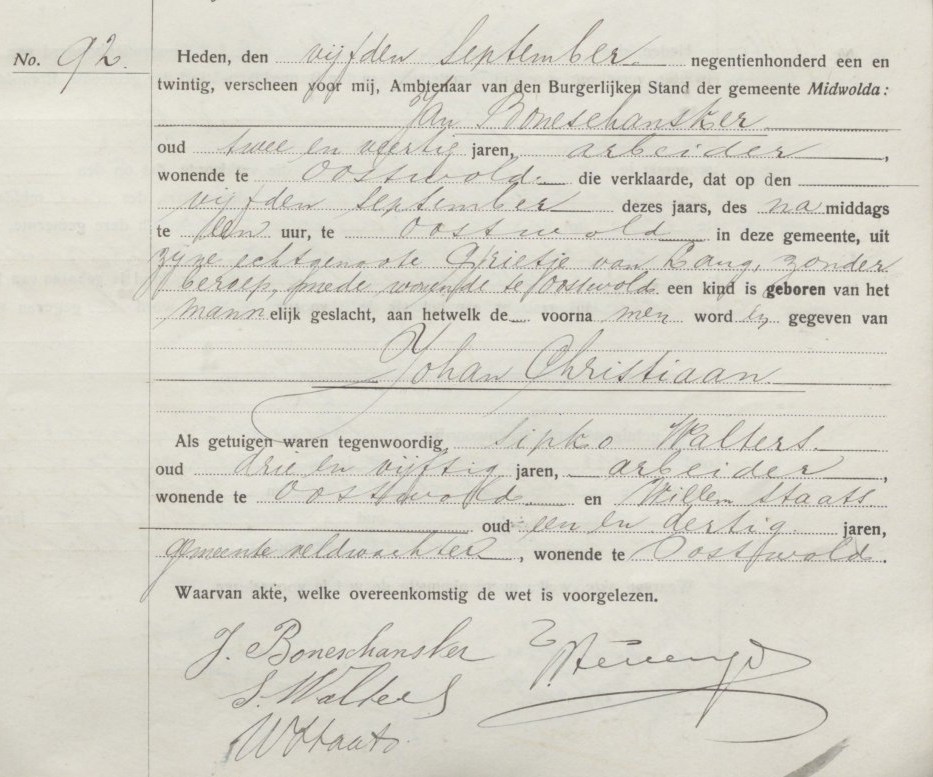 No. 92.
Heden, den vijfden September negentienhonderd een en
twintig, verscheen voor mij, Ambtenaar van den Burgerlijken Stand der gemeente Midwolda:
Jan Boneschansker
oud twee en veertig jaren, arbeider,
wonende te Oostwold die verklaarde, dat op den
vijfden September dezes jaars, des na middags
te een uur, te Oostwold in deze gemeente, uit
zijne echtgenoote Grietje van Lang, zonder
beroep, mede wonende te Oostwold een kind is geboren van het
mannelijk geslacht, aan hetwelk de voornamen worden gegeven van
Johan Christiaan.
Als getuigen waren tegenwoordig Sipko Walters.
oud drie en vijftig jaren, arbeider
wonende te Oostwold en Willem Staats
oud een en dertig jaren,
gemeente veldwachter, wonende te Oostwold.
Waarvan akte, welke overeenkomstig de wet is voorgelezen.
J. Boneschansker
S. Walters
W Staats.